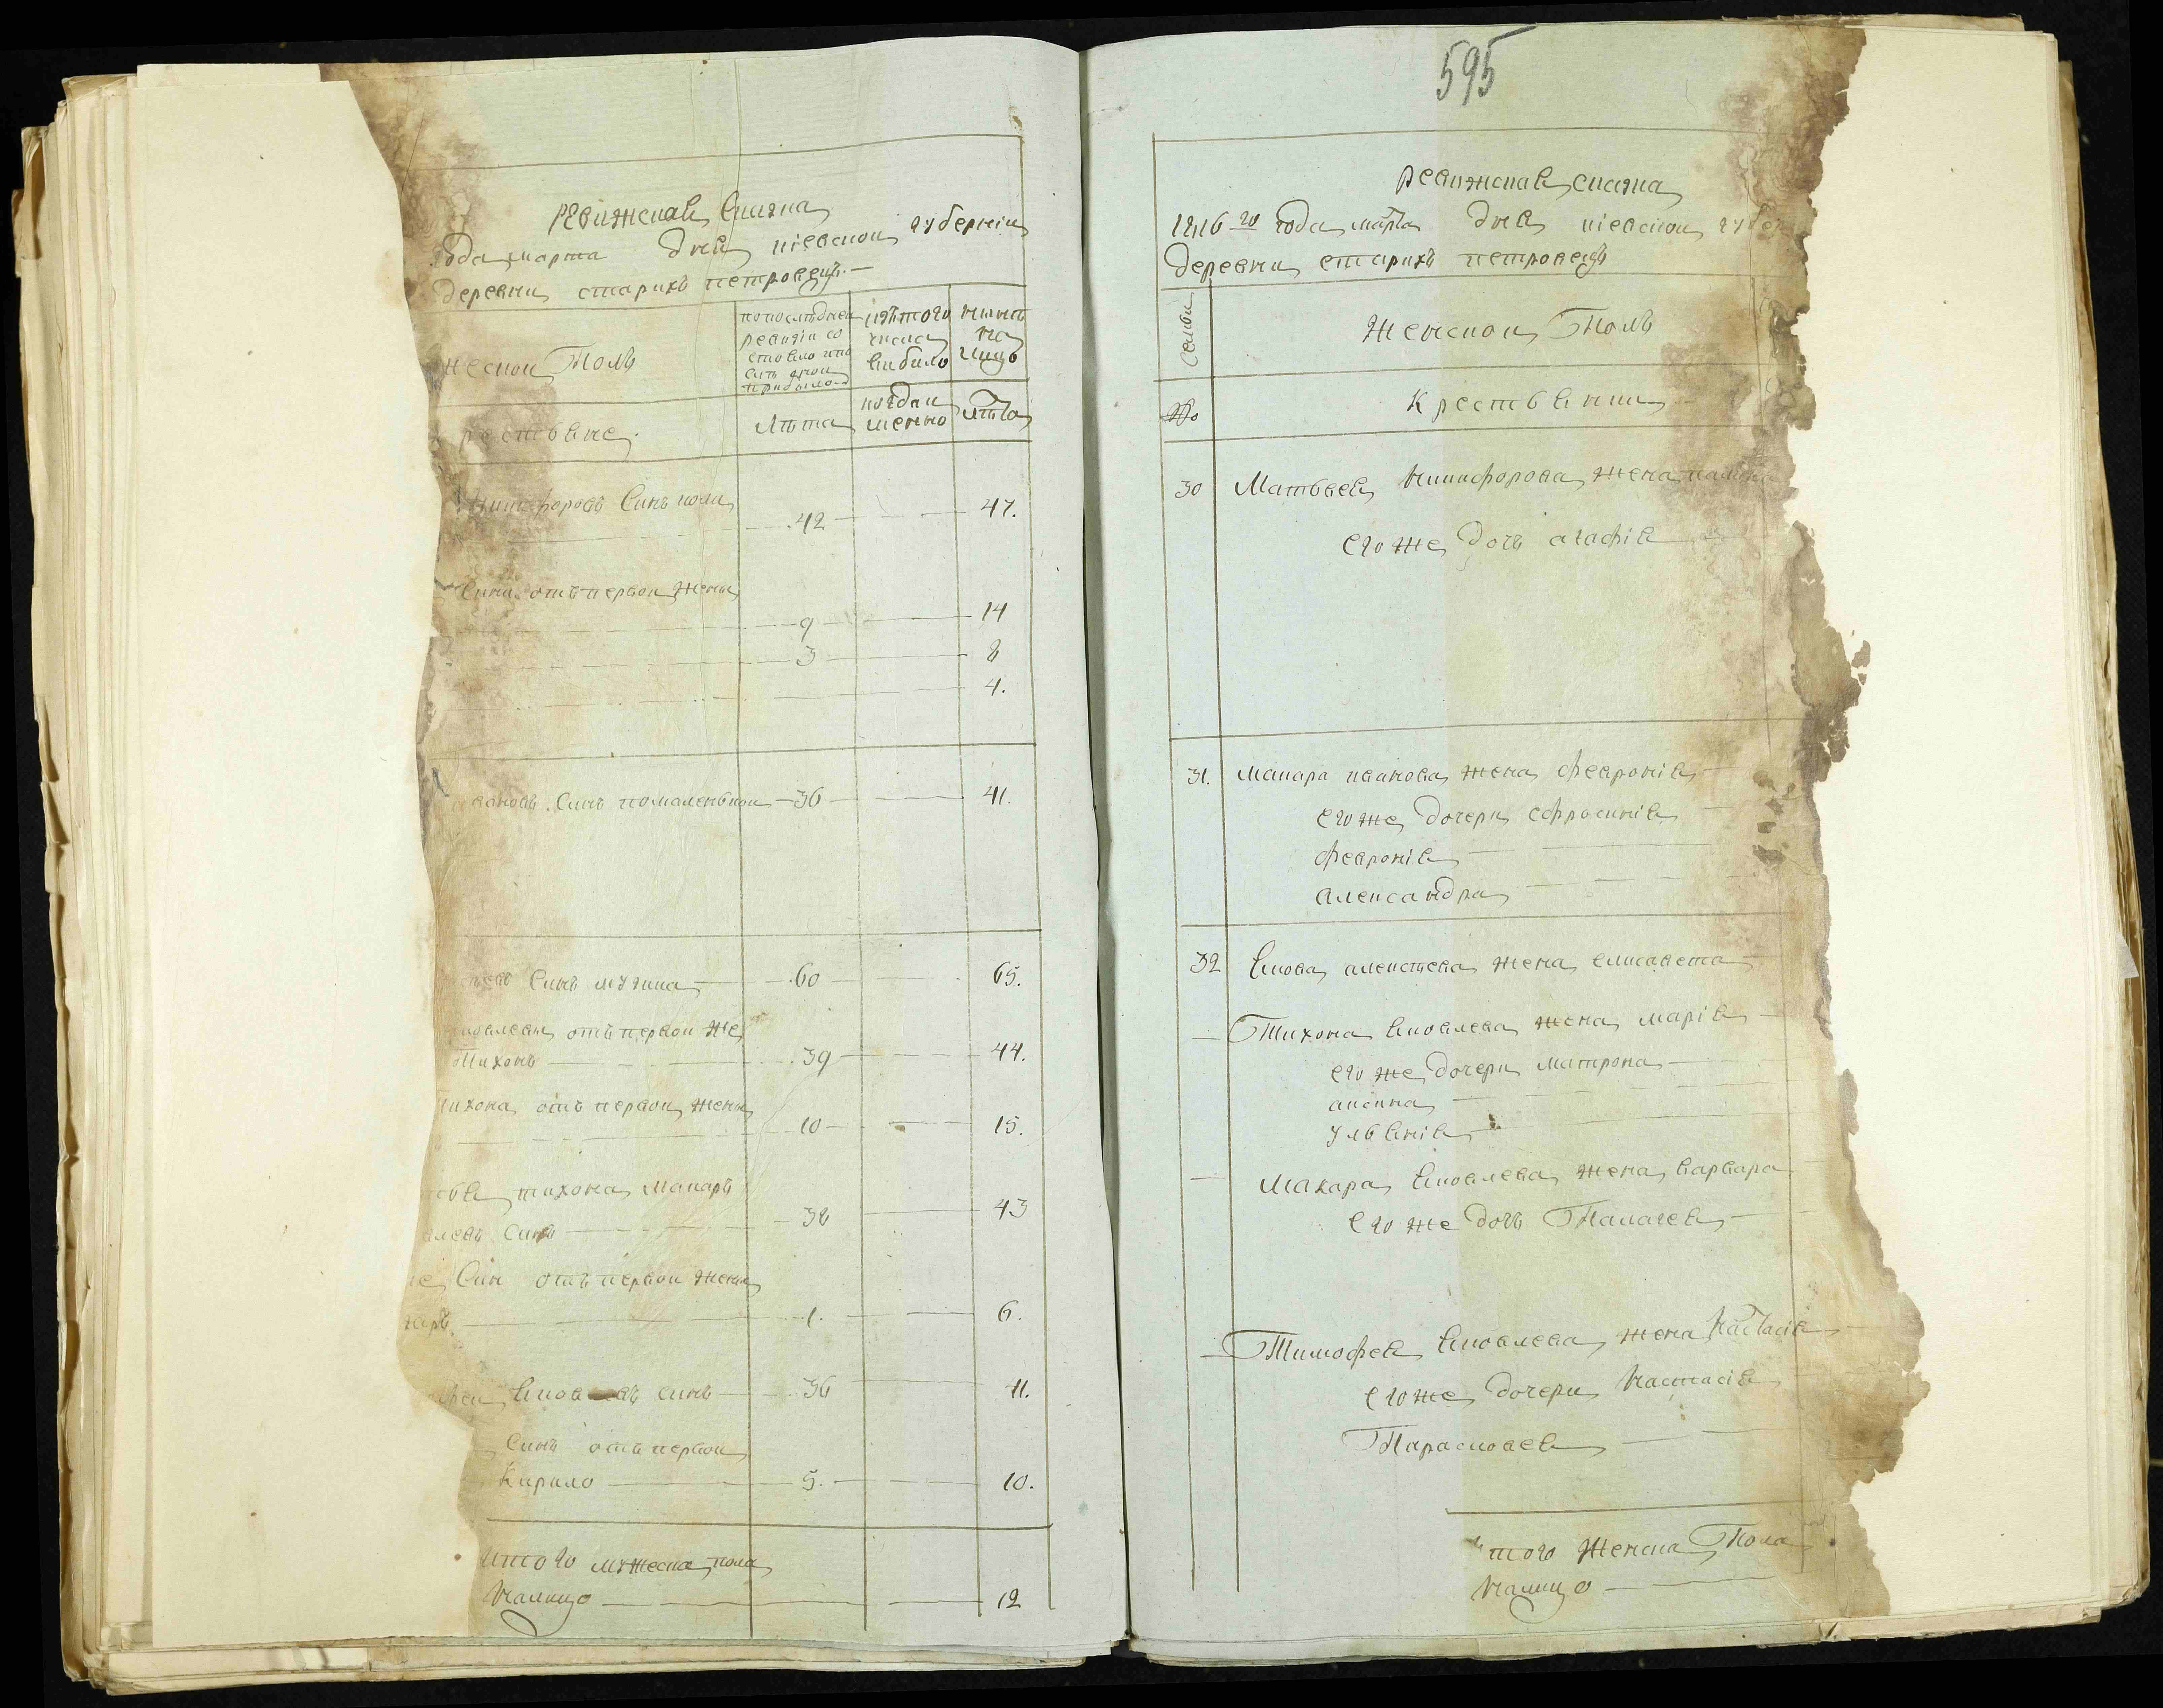 ревижская сказка
года марта дня киевской губернии
деревни старихъ петровецъ
жеской Полъ
попоследней ревизіи состояло и после оной прибыло
изътого числа выбило
нынѣ на лицо
рестьяне
Лѣта
когда именно
Лѣта
никифоровъ Синъ
42 47.
Сини отъ первой жены
9 14
3 8
4.
вановъ Синъ помаленькой 36 41.
Синъ музика 60 65.
яковлевы отъ первой же
Тихонъ 39 44.
ихона отъ первой жены
10 15.
тихона макаръ
влевъ Синъ 38 43
Син отъ первой жены
1. 6.
фей яковлевъ синъ 36 41.
Синъ отъ первой
Кирило 5. 10.
Итого мужеска пола
Налицо 12
595
ревижская сказка
1816го года марта дня киевской губер
деревни старихъ петровецъ
Семьи
Женской Полъ
№
Крестьянки
30 Матвея никифорова жена
его же дочь агафія
31. макара иванова жена февронія
его же дочери ефросинія
февронія
александра
32 Якова алексеева жена елисавета
Тихона яковлева жена марія
его же дочери матрона
аксина
ульянія
Макара яковлева жена варвара
его же дочь Палагея
Тимофея яковлева жена настасія
его же дочери настасія
Парасковея
итого женска Пола
Налицо